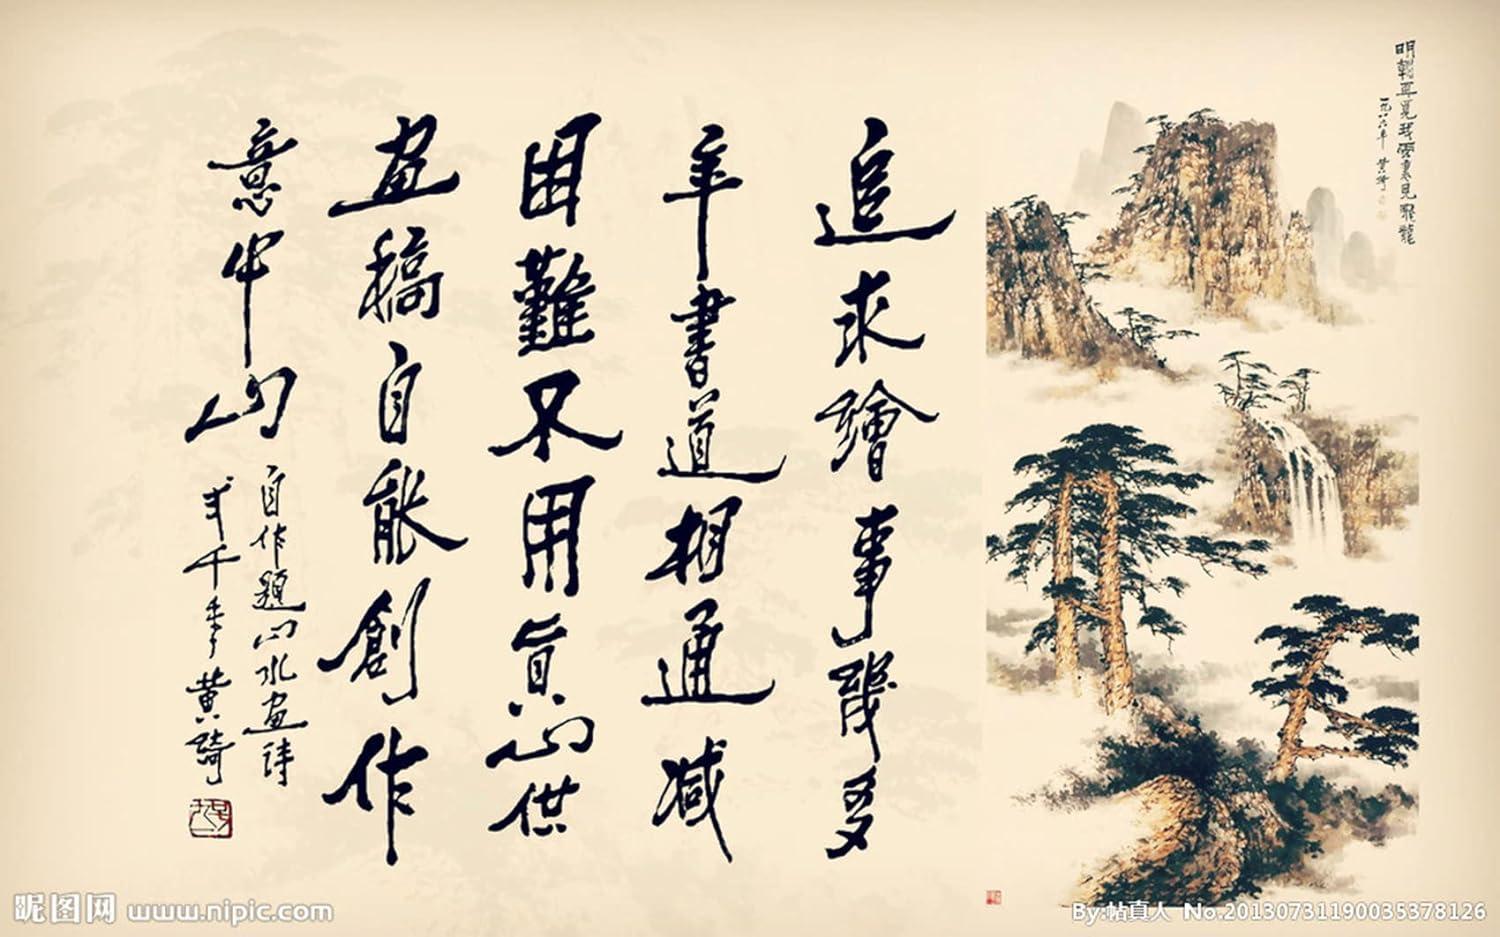 追求繪事幾多
年書道相通減
困難不用真心供
畫稿自能創作
意中山
自作題山水畫詩
弍千年黄琦
一九八六年 黄琦
昵图网 www.nipic.com
By:帖真人 No.20130731190035378126